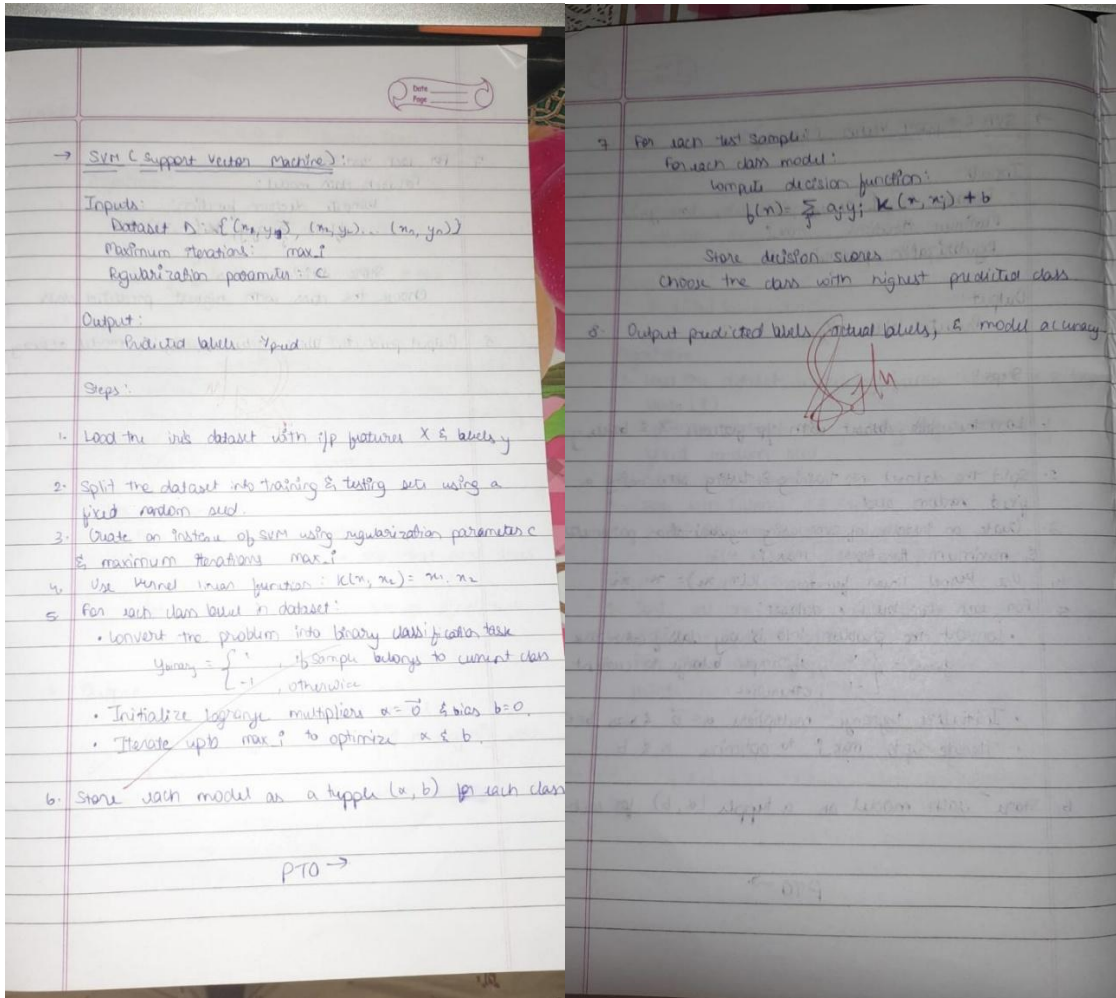 Date
Page
→ SVM (Support Vector Machine):
Inputs:
Dataset D: {(x₁, y₁), (x₂, y₂)... (xₙ, yₙ)}
Maximum iterations: max_i
Regularization parameter: C
Output:
Predicted labels y_pred
Steps:
1. Load the iris dataset with i/p features X & labels y
2. Split the dataset into training & testing sets using a
fixed random seed.
3. Create an instance of SVM using regularization parameter C
& maximum iterations max_i
4. Use kernel linear function: K(x₁, x₂) = x₁. x₂
5. For each class label in dataset:
• Convert the problem into binary classification task
y_binary = { 1 , if sample belongs to current class
-1 , otherwise
• Initialize lagrange multipliers α = 0⃗ & bias b=0.
• Iterate upto max_i to optimize α & b.
6. Store each model as a tupple (α, b) for each class
PTO →
7 For each test sample:
For each class model:
Compute decision function:
f(x) = Σ_j α_j y_j K(x, x_j) + b
Store decision scores
Choose the class with highest predicted class
8. Output predicted labels, actual labels, & model accuracy